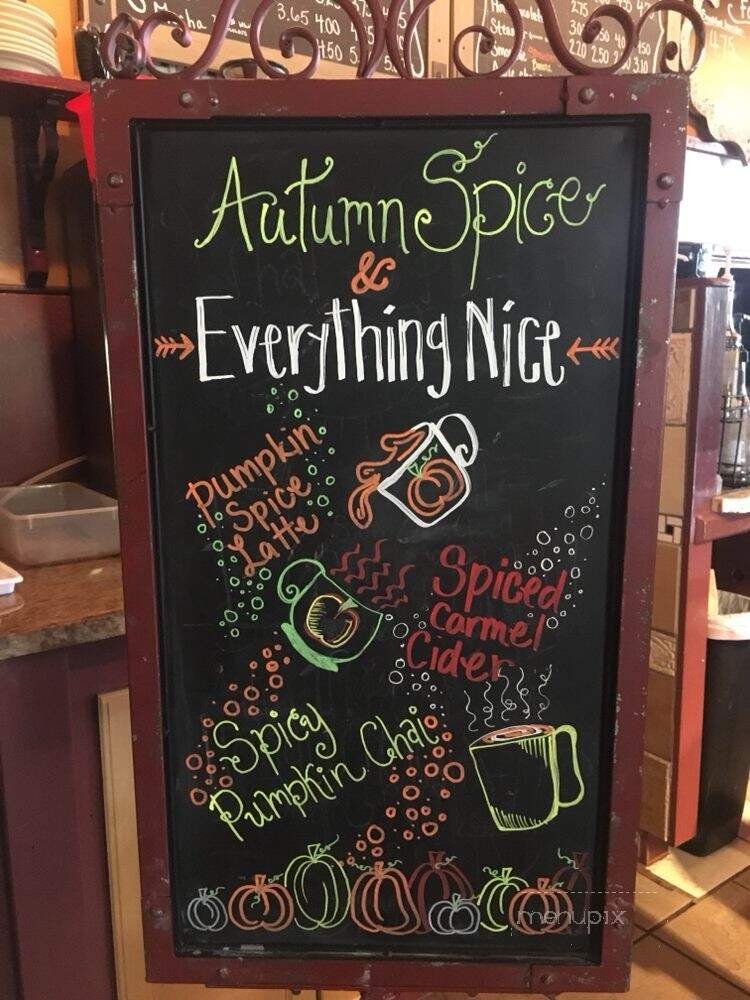 Mocha
3.65 400
450
Autumn Spice
&
Everything Nice
Pumpkin
Spice
Latte
Spiced
Carmel
Cider
Spicy
Pumpkin Chai
menupix